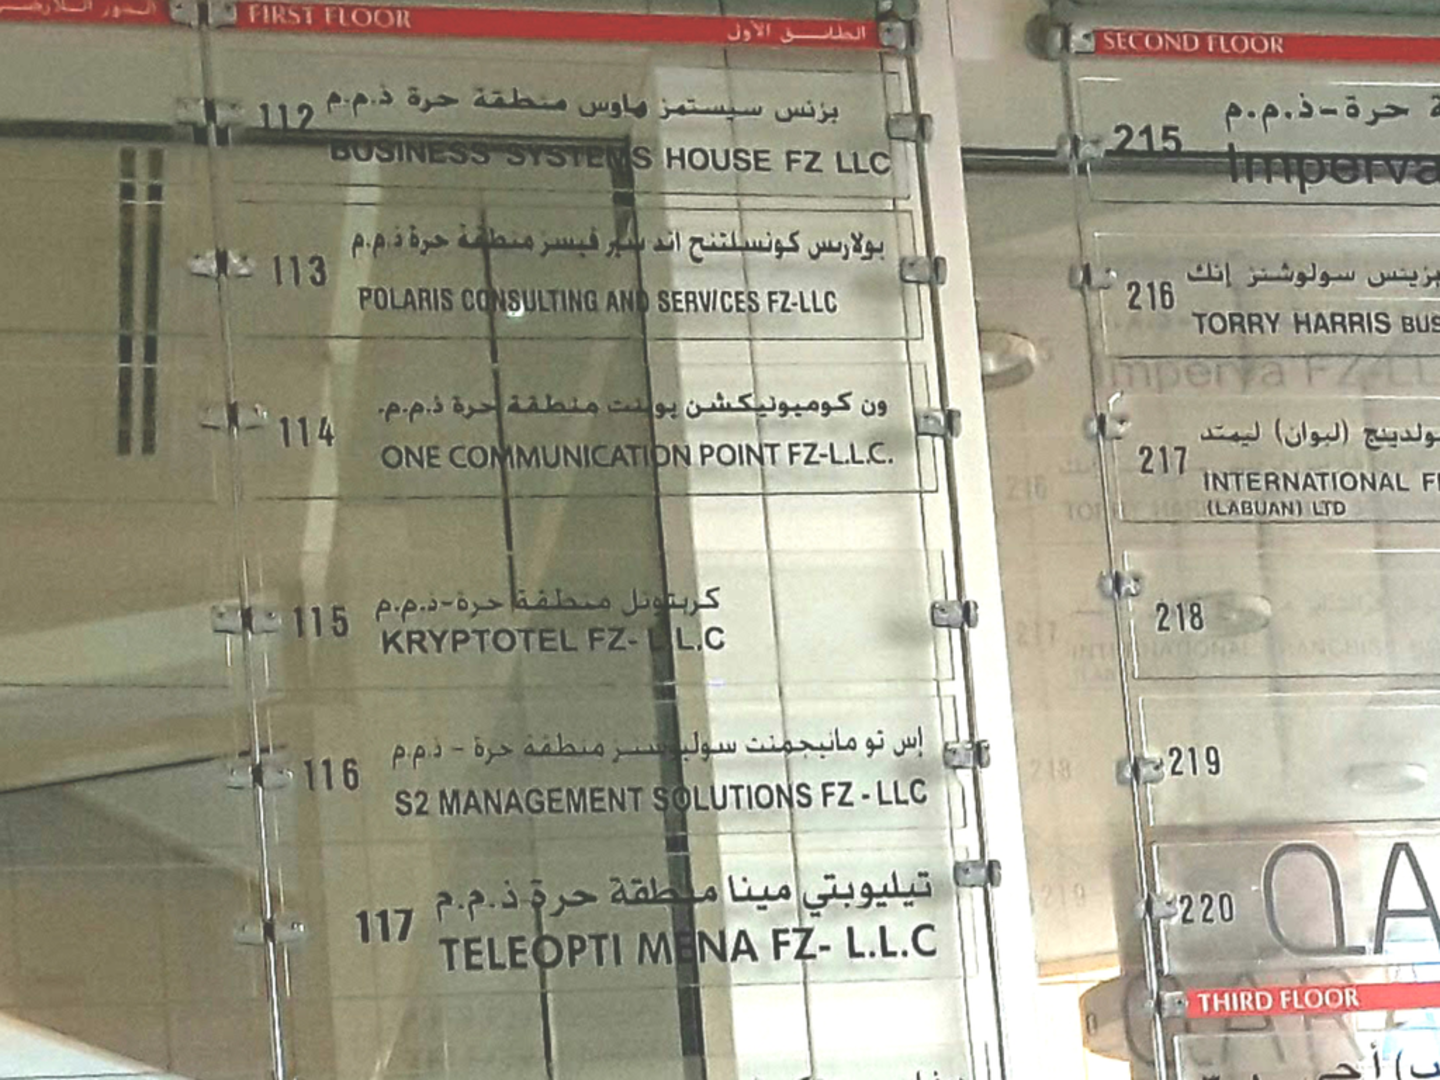 FIRST FLOOR
الطابق الأول
112
بزنس سيستمز هاوس منطقة حرة ذ.م.م
BUSINESS SYSTEMS HOUSE FZ LLC
113
بولاريس كونسلتنج اند سيرفيسز منطقة حرة ذ.م.م
POLARIS CONSULTING AND SERVICES FZ-LLC
114
ون كوميونيكشن بوينت منطقة حرة ذ.م.م.
ONE COMMUNICATION POINT FZ-L.L.C.
115
كريتوتل منطقة حرة-ذ.م.م
KRYPTOTEL FZ- L.L.C
116
إس تو مانيجمنت سوليوشنز منطقة حرة - ذ.م.م
S2 MANAGEMENT SOLUTIONS FZ - LLC
117
تيليوبتي مينا منطقة حرة ذ.م.م
TELEOPTI MENA FZ- L.L.C
SECOND FLOOR
215
حرة-ذ.م.م
Imperva
216
بزينس سولوشنز إنك
TORRY HARRIS BUS
217
ولدينج (لبوان) ليمتد
INTERNATIONAL F
(LABUAN) LTD
218
219
220
QA
THIRD FLOOR